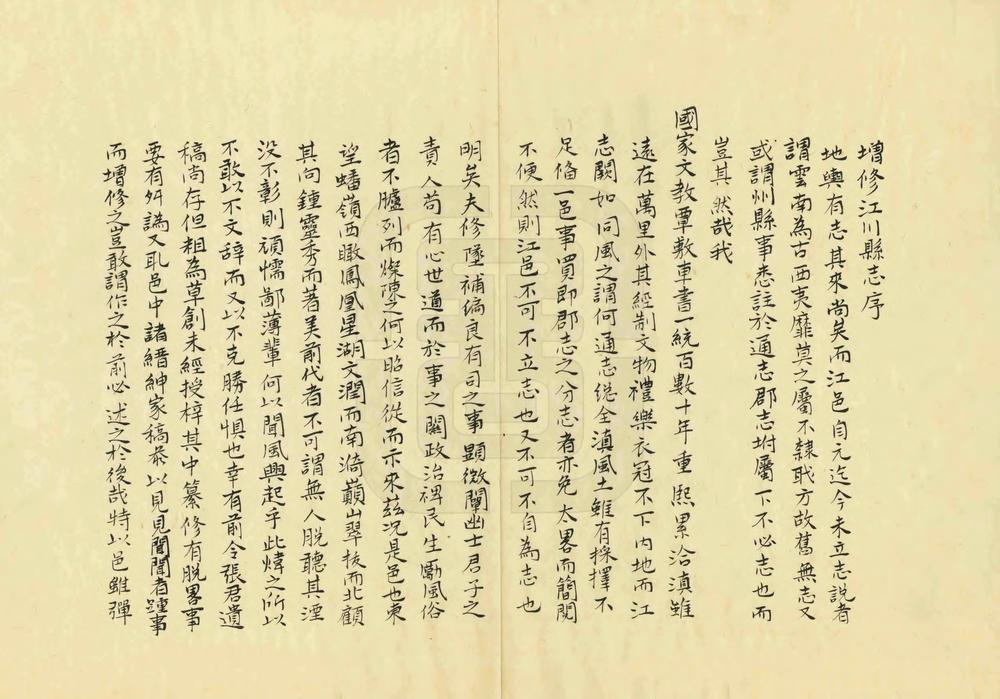 增修江川縣志序
地輿有志其來尚矣而江邑自元迄今未立志說者
謂雲南為古西夷靡莫之屬不隸職方故舊無志又
或謂州縣事悉註於通志郡志坿屬下不必志也而
豈其然哉我
國家文教覃敷車書一統百數十年重熙累洽滇雖
遠在萬里外其經制文物禮樂衣冠不下內地而江
志闕如同風之謂何通志總全滇風土雖有採擇不
足俻一邑事實即郡志之分志者亦免太畧而簡閱
不便然則江邑不可不立志也又不可不自為志也
明矣夫修墜補偏良有司之事顯微闡幽士君子之
責人苟有心世道而於事之關政治裨民生勵風俗
者不臚列而燦陳之何以昭信從而示來茲况是邑也東
望蟠嶺西瞰鳳凰星湖文潤而南漪巔山翠挨而北顧
其向鍾靈秀而著美前代者不可謂無人脫聽其湮
沒不彰則頑懦鄙薄輩何以聞風興起乎此煒之所以
不敢以不文辞而又以不克勝任惧也幸有前令張君遺
稿尚存但粗為草創未經授梓其中纂修有脫畧事
要有舛譌又取邑中諸縉紳家稿叅以見見聞聞者踵事
而增修之豈敢謂作之於前必述之於後哉特以邑雖彈